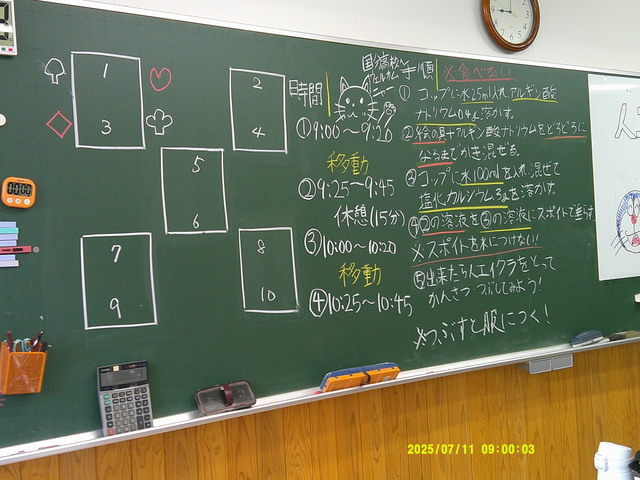 1
3
2
4
5
6
7
9
8
10
時間
①9:00～9:20
移動
②9:25～9:45
休憩(15分)
③10:00～10:20
移動
④10:25～10:45
手順
※食べない
①コップに水25ml入れアルギン酸
ナトリウム0.4g溶かす。
②絵の具+アルギン酸ナトリウムをどろどろに
なるまでかき混ぜる。
③コップに水100mlを入れ混ぜて
塩化カルシウム3gを溶かす。
④②の溶液を③の溶液にスポイトで垂らす
※スポイトを水につけない!!
⑤出来たら人工イクラをとって
かんさつ つぶしてみよう!
※つぶすと服につく!
2025/07/11 09:00:03